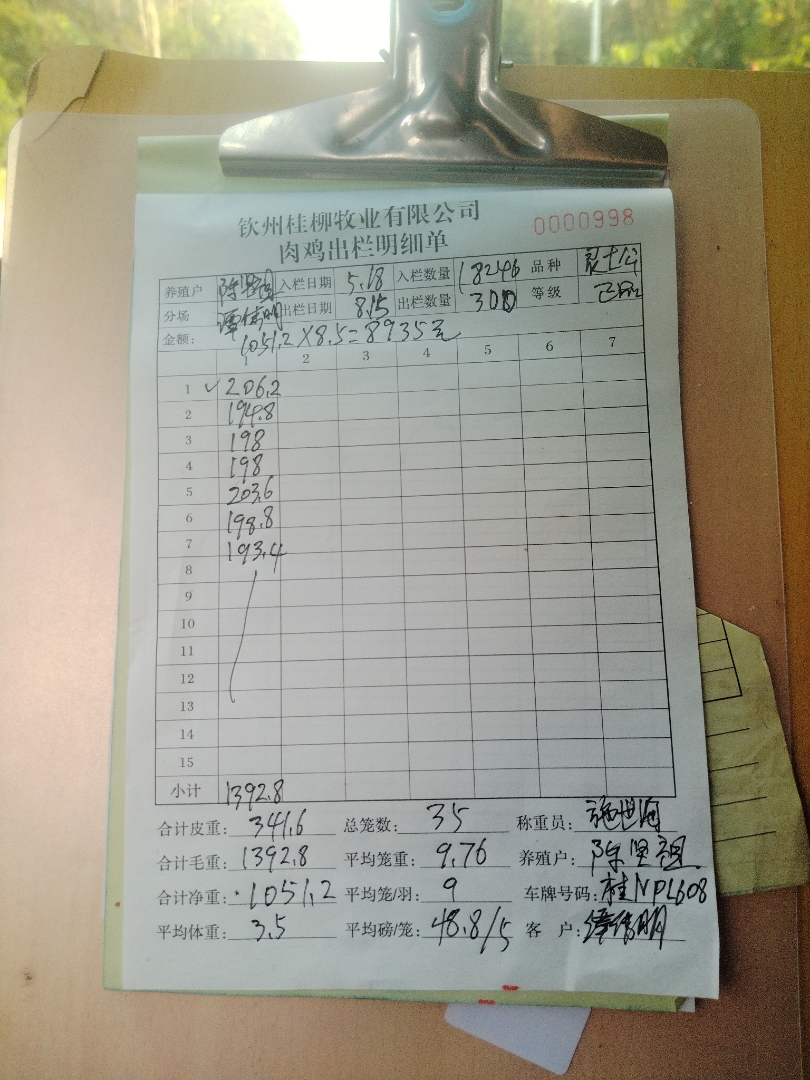 钦州桂柳牧业有限公司
0000998
肉鸡出栏明细单
养殖户 陈坚祖 入栏日期 5.18 入栏数量 18246 品种
分场 谭信明 出栏日期 8.15 出栏数量 300 等级
金额: 1051.2×8.5=8935元
1 2 3 4 5 6 7
1 ✓ 206.2
2 194.8
3 198
4 198
5 203.6
6 198.8
7 193.4
8
9
10
11
12
13
14
15
小计 1392.8
合计皮重: 341.6 总笼数: 35 称重员: 施世海
合计毛重: 1392.8 平均笼重: 9.76 养殖户: 陈坚祖
合计净重: 1051.2 平均笼/羽: 9 车牌号码: 桂NPL608
平均体重: 3.5 平均磅/笼: 48.8/5 客户: 谭信明